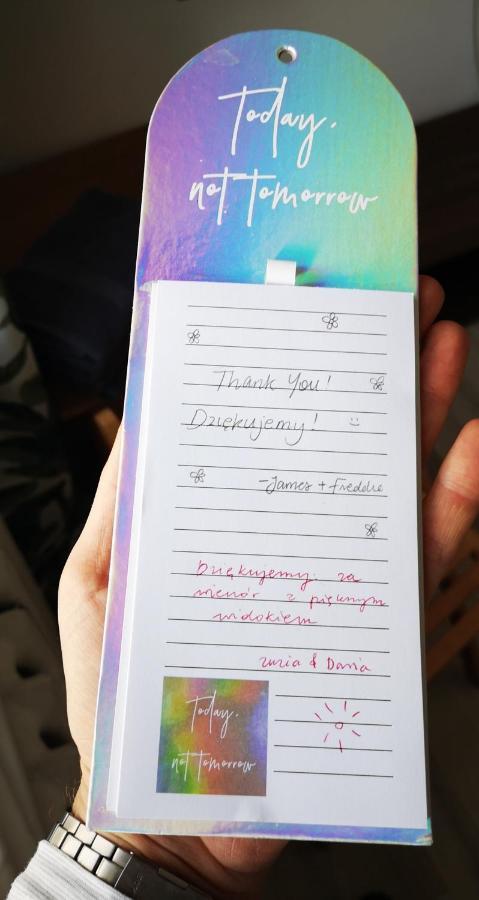 Today.
not tomorrow
Thank You!
Dziękujemy! :)
-James + Freddie
Dziękujemy za
wieczór z pięknym
widokiem
Zuzia & Daria
Today.
not tomorrow